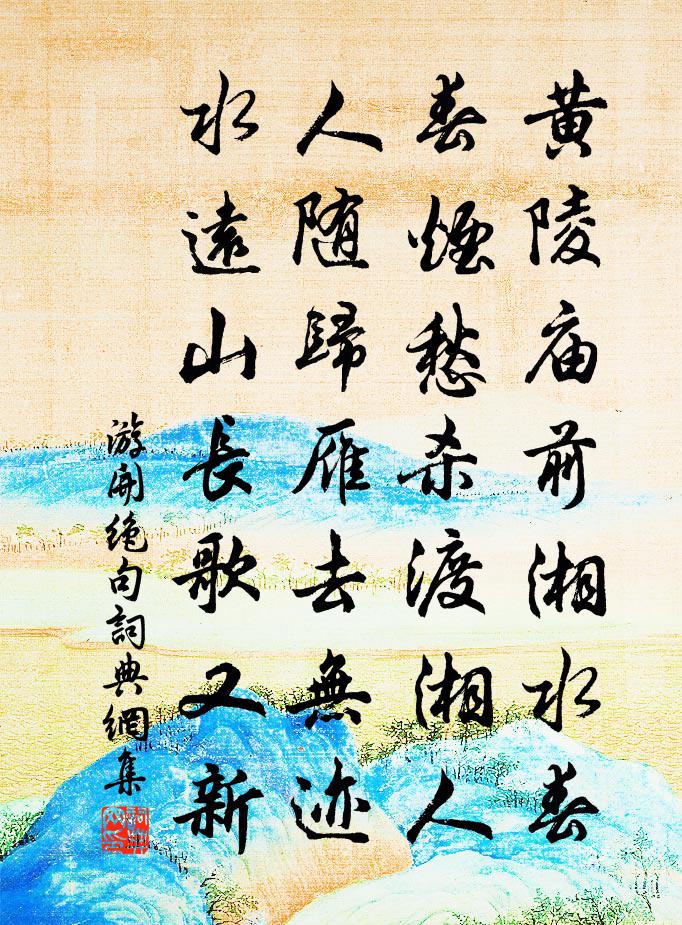 黄陵庙前湘水春
春煙愁杀渡湘人
人随歸雁去無迹
水遠山長歌又新
游開絶句詞典網集